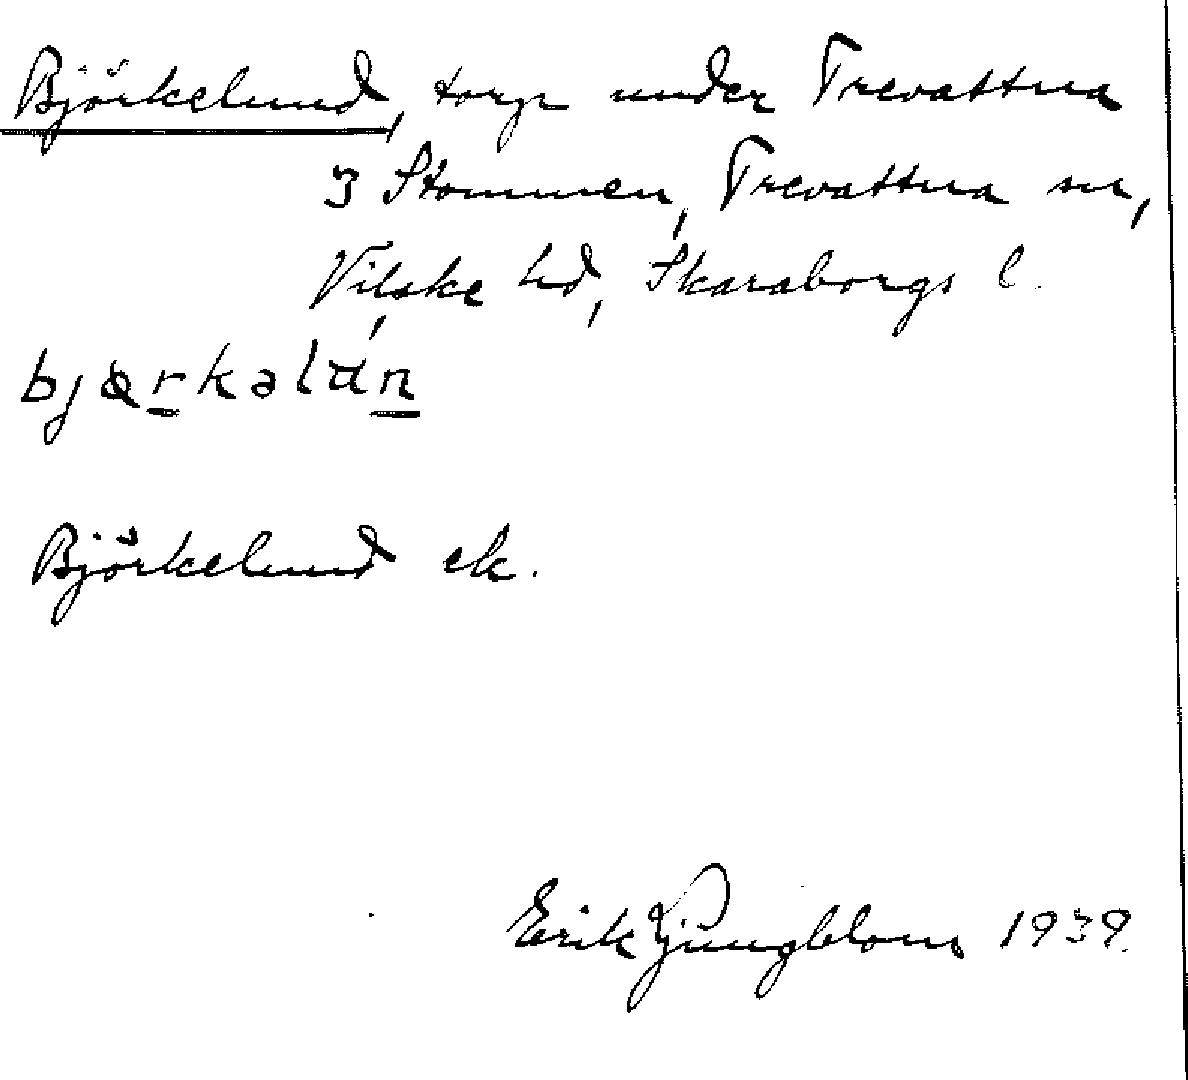 Björkelund, torp under Trevattna
3 Stommen, Trevattna sn,
Vilske hd, Skaraborgs l.
bjærkəlun
Björkelund ek.
Erik Ljungblom 1939.